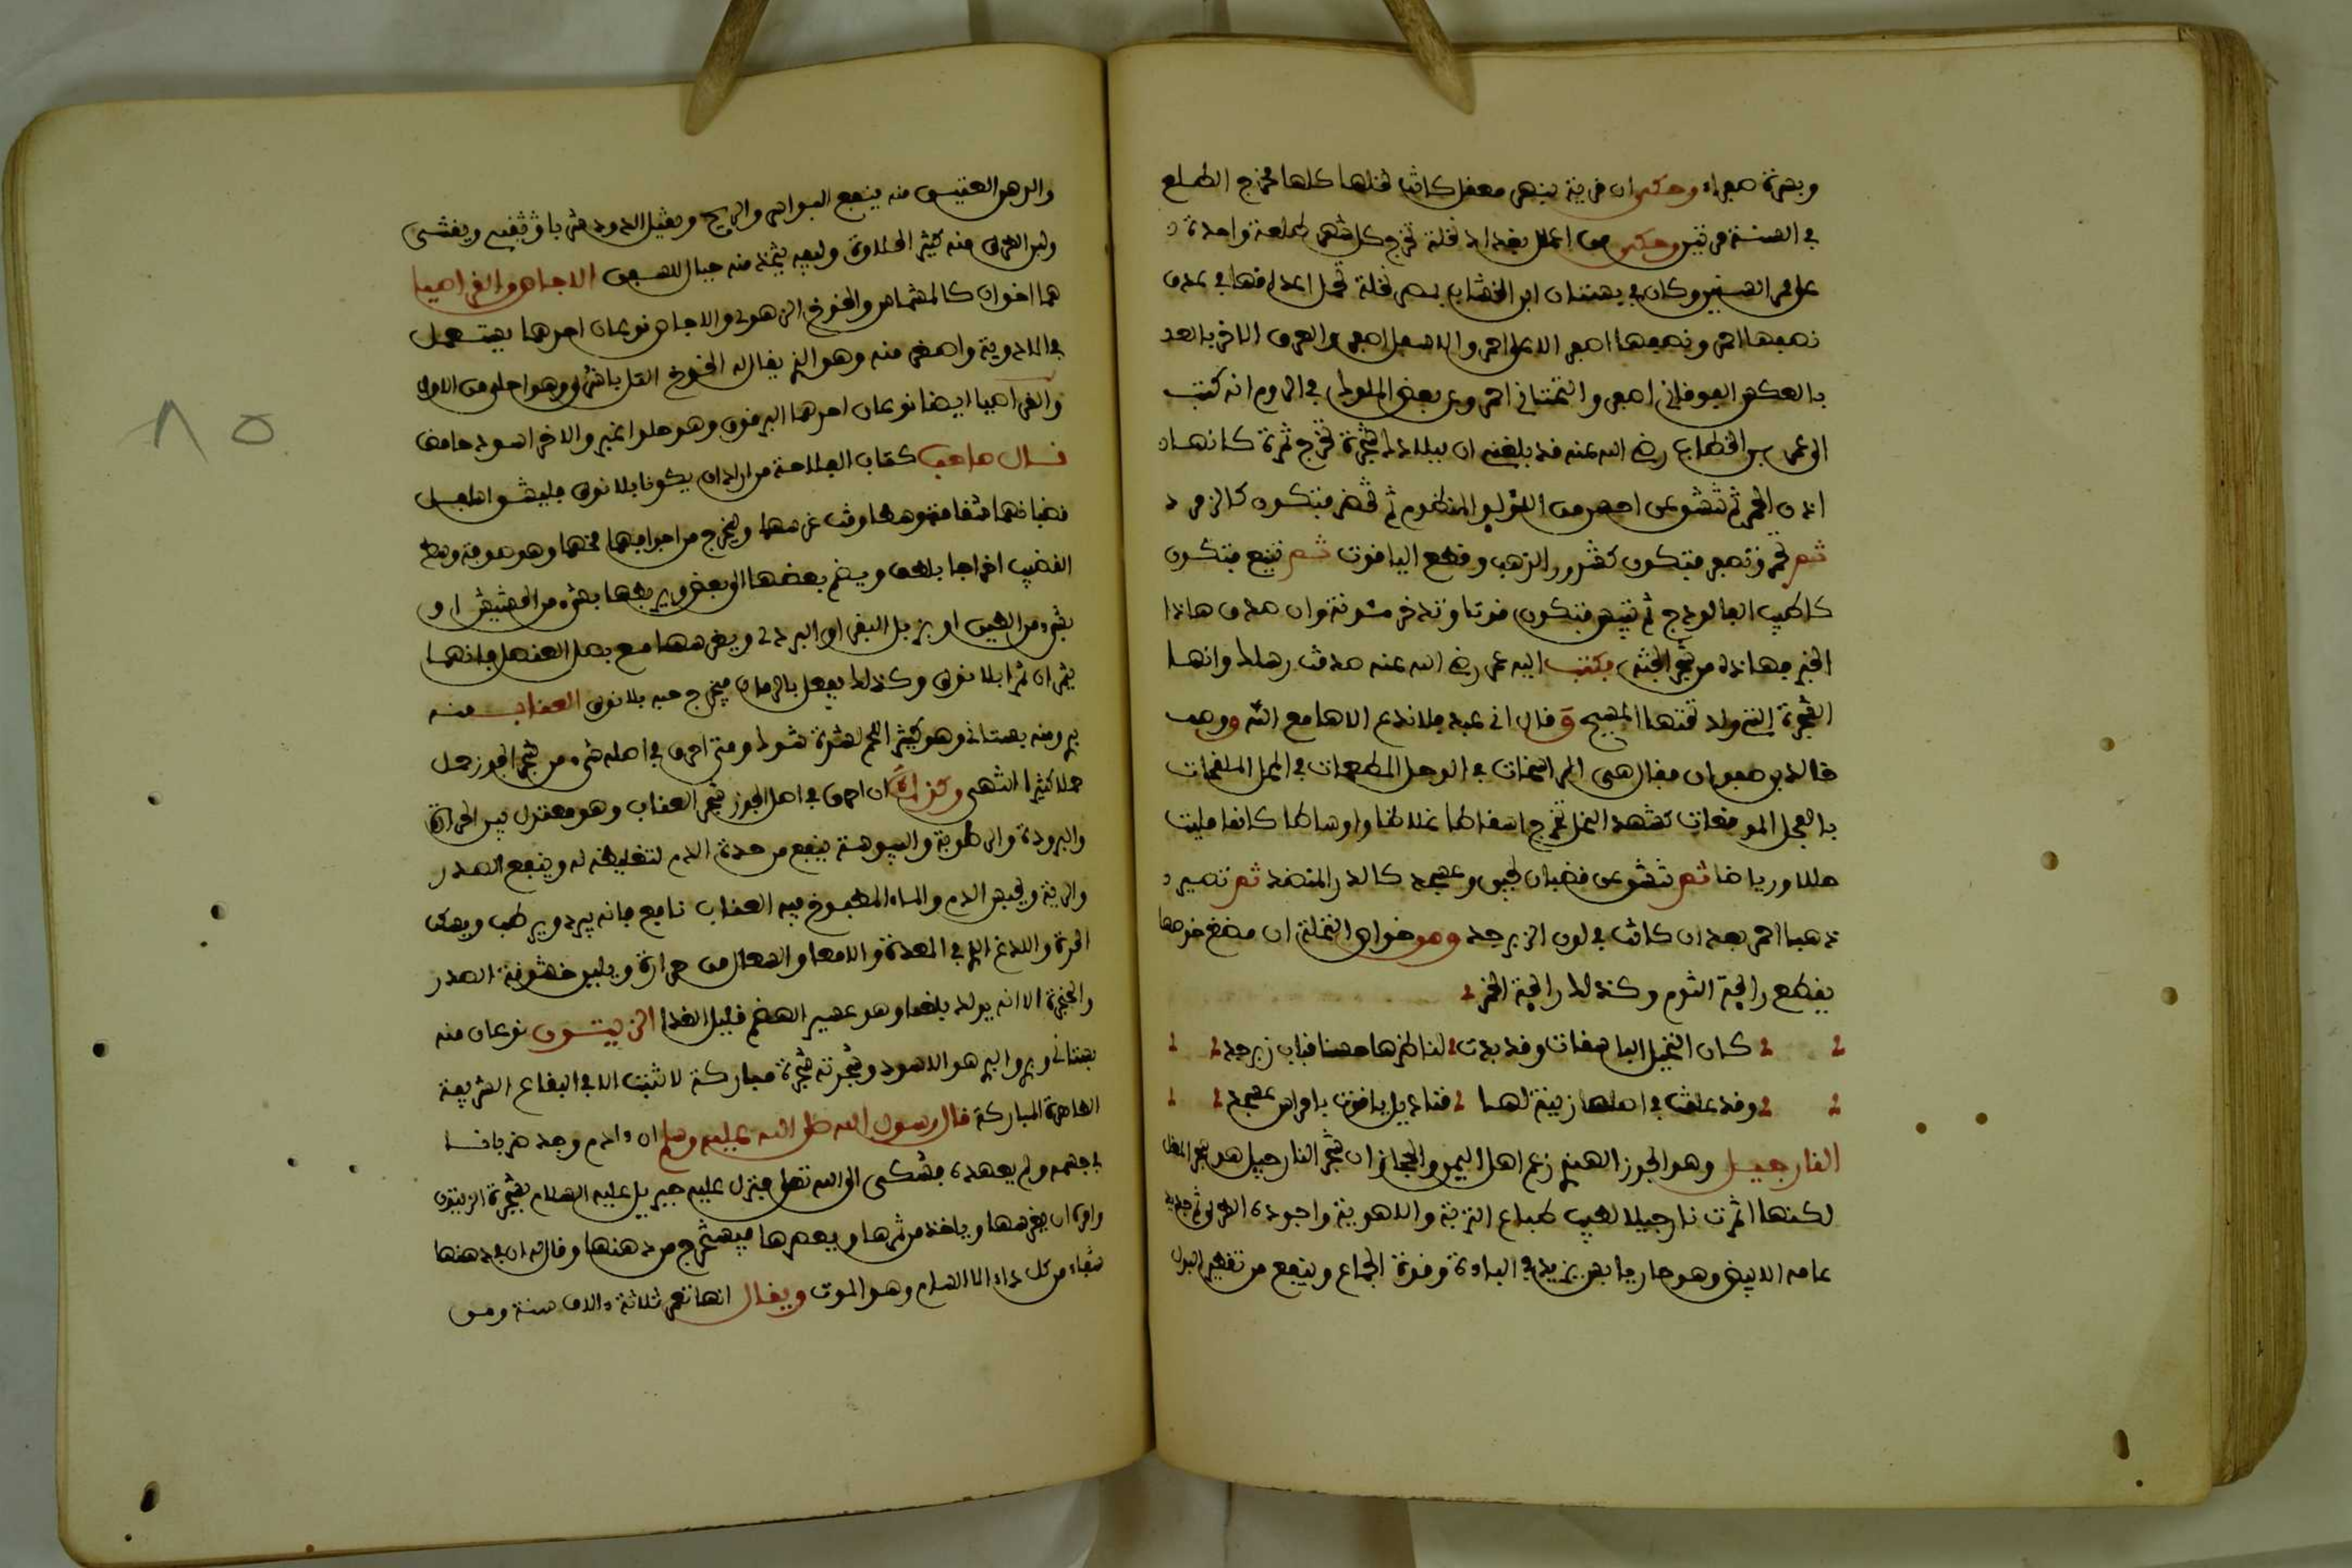 وبسرة صفراء وحكي ان قرية بنهر معقل كانت نخلها كلها تخرج الطلع
في السنة مرتين وحكي من اعمال بغداد نخلة تخرج كل شهر طلعة واحدة
على مر السنين وكان في بستان ابن الخشاب بمصر نخلة تحمل اعذاقها في عذق
نصفها احمر ونصفها اصفر الاعلى احمر والاسفل اصفر والعذق الاخر بالعد
بالعكس الفوقاني اصفر والتحتاني احمر وعن بعض الملوك في الروم انه كتب
الى عمر بن الخطاب رضي الله عنه قد بلغني ان ببلادك شجرة تخرج ثمرة كانها
اذن الحمر ثم تنشق عن احسن من اللؤلؤ المنظوم ثم تخضر فتكون كالزمرد
ثم تحمر وتصفر فتكون كشذور الذهب وقطع الياقوت ثم تينع فتكون
كاطيب الفالوذج ثم تيبس فتكون قوتا وتدخر مئونة وان صدق هاذا
الخبر فهاذه من شجر الجنة فكتب اليه عمر رضي الله عنه صدقت رسلك وانها
الشجرة التي ولد تحتها المسيح وقال اني عبد فلا تدع الاها مع الله ووصف
خالد بن صفوان فقال هي الراسخات في الوحل المطعمات في المحل الملقحات
بالفحل الموقعات كشهد النحل تخرج اسفاطا غلاظا واوساطا كانما مليت
حللا ورياطا ثم تنشق عن قضبان لجين وعسجد كالدر المنضد ثم تصير
ذهبا احمر بعد ان كانت في لون الزبرجد ومن خواص النخلة ان مضغ خوصها
يقطع رائحة الثوم وكذلك رائحة الخمر
كان النخيل الباسقات وقد بدت لناظرها حسنا قباب زبرجد
وقد علقت في اصلها زينة لها قناديل ياقوت بامراس عسجد
النارجيل وهو الجوز الهندي زعم اهل اليمن والحجاز ان شجر النارجيل هو شجر المقل
لكنها اثمرت نارجيلا لطيب طباع التربة والاهوية واجوده الطري ثم جديد
عامه الابيض وهو حار يابس يزيد في الباءة وقوة الجماع وينفع من تقطير البول
والدهن العتيق منه ينفع البواسر والريح ويقتل الدود شربا وينقيه ويغشى
ولبن الطري منه كثير الحلاوة وليفه يتخذ منه حبال للسفن الاجاص والقراصيا
هما اخوان كالمشماس والخوخ الزهري والاجاص نوعان احدهما يستعمل
في الادوية واصغر منه وهو الذي يقال له الخوخ وهو احلى من الاول
والقراصيا ايضا نوعان احدهما البرقوق وهو حلو اغبر والاخر اسود حامض
قال صاحب كتاب الفلاحة من اراد ان يكونا بلا نوى فليشق اسفل
قضبانهما شقا متوسطا وقت غرسهما ويخرج من اجوافهما مخهما وهو صوفة وسط
القضيب اخراجا بلطف ويضم بعضها الى بعض ويربطها بشيء من الحشيش او
بشيء من الطين او بزبل البقر او البردي ويغرسهما مع بصل العنصل فانهما
يثمران ثمرا بلا نوى وكذلك يفعل بالرمان فيخرج حبه بلا نوى العناب منه
بري ومنه بستاني وهو كثير الحمل لشجرة شوك ومتى احرق في اصله شيء من شجر الجوز حمل
حملا كثيرا انتهى وكذلك ان احرق في اصل الجوز شجر العناب وهو معتدل بين الحرارة
والبرودة والرطوبة واليبوسة ينفع من حدة الدم لتغليظه له وينفع الصدر
والرية ويحبس الدم والماء المطبوخ فيه العناب نافع فانه يبرد ويرطب ويسكن
الحدة واللذغ الذي في المعدة والامعا والسعال من حرارة ويلين خشونة الصدر
والحنجرة الا انه يولد بلغما وهو عسير الهضم قليل الغذا الزيتون نوعان منه
بستاني وبري والبري هو الاسود وشجرته شجرة مباركة لا تنبت الا في البقاع الشريفة
الطاهرة المباركة قال رسول الله صلى الله عليه وسلم ان ءادم وجد ضربانا
في جسمه ولم يعهده فشكى الى الله تعلى فنزل عليه جبريل عليه السلام بشجرة الزيتون
وامره ان يغرسها وياخذ من ثمرها ويعصرها فيستخرج من دهنها وقال له ان في دهنها
شفاء من كل داء الا السام وهو الموت ويقال انها تعمر ثلاثة ءالاف سنة ومن
٨٥